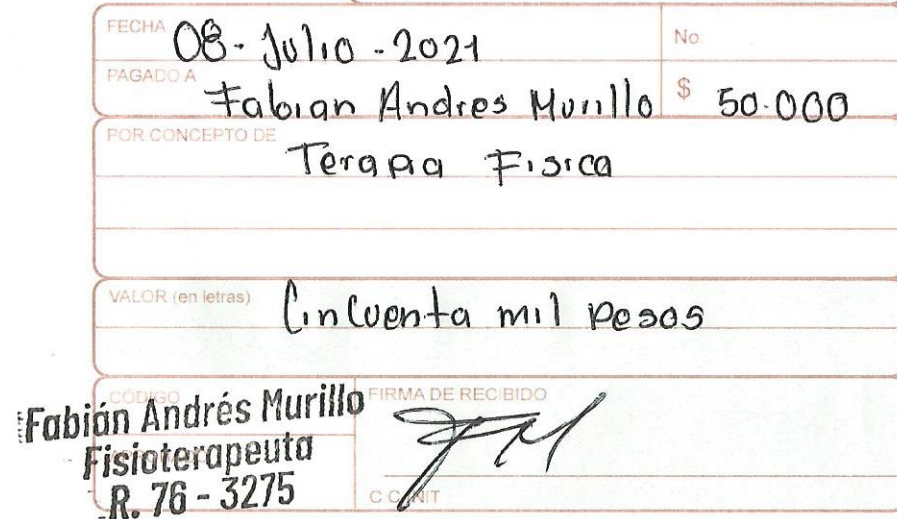 FECHA 08-Julio-2021 No.
PAGADO A Fabian Andres Murillo $ 50.000
POR CONCEPTO DE Terapia Fisica
VALOR (en letras) Cincuenta mil pesos
CÓDIGO FIRMA DE RECIBIDO
Fabián Andrés Murillo
Fisioterapeuta
R. 76 - 3275
C.C./NIT